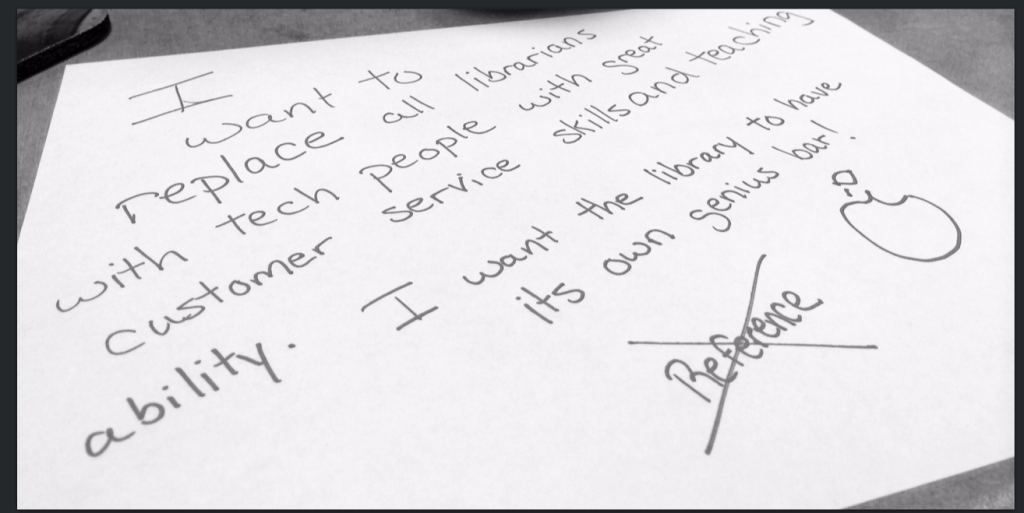 I
want to
replace all librarians
with tech people with great
customer service skills and teaching
ability.
I want the library to have
its own genius bar!
Reference